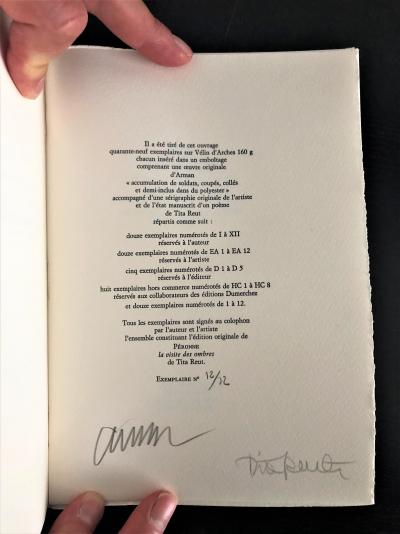 Il a été tiré de cet ouvrage
quarante-neuf exemplaires sur Vélin d'Arches 160 g
chacun inséré dans un emboîtage
comprenant une œuvre originale
d'Arman
« accumulation de soldats, coupés, collés
et demi-inclus dans du polyester »
accompagné d'une sérigraphie originale de l'artiste
et de l'état manuscrit d'un poème
de Tita Reut
répartis comme suit :
douze exemplaires numérotés de I à XII
réservés à l'auteur
douze exemplaires numérotés de EA 1 à EA 12
réservés à l'artiste
cinq exemplaires numérotés de D 1 à D 5
réservés à l'éditeur
huit exemplaires hors commerce numérotés de HC 1 à HC 8
réservés aux collaborateurs des éditions Dumerchez
et douze exemplaires numérotés de 1 à 12.
Tous les exemplaires sont signés au colophon
par l'auteur et l'artiste
l'ensemble constituant l'édition originale de
PÉRONNE
la visite des ombres
de Tita Reut.
EXEMPLAIRE N° 12/12
arman
Tita Reut